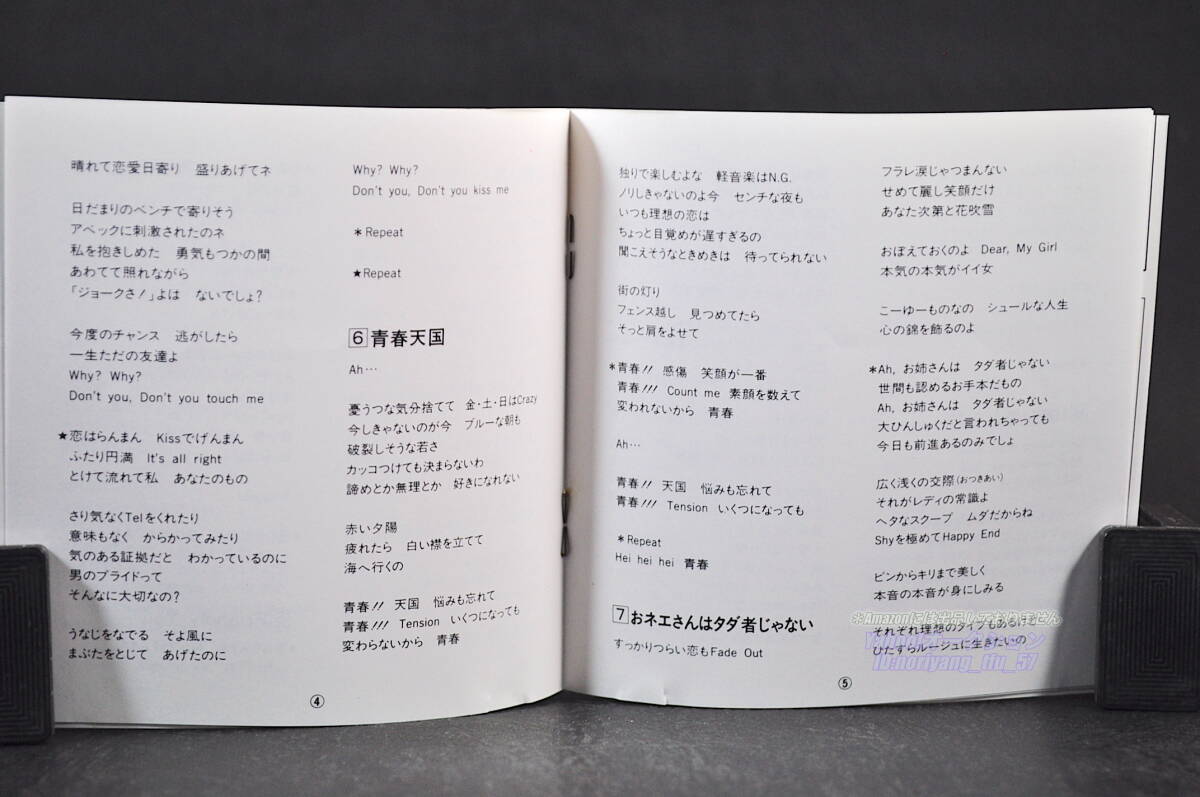 晴れて恋愛日寄り　盛りあげてネ
日だまりのベンチで寄りそう
アベックに刺激されたのネ
私を抱きしめた　勇気もつかの間
あわてて照れながら
「ジョークさ!」よは　ないでしょ?
今度のチャンス　逃がしたら
一生ただの友達よ
Why? Why?
Don't you, Don't you touch me
★恋はらんまん　Kissでげんまん
ふたり円満　It's all right
とけて流れて私　あなたのもの
さり気なくTelをくれたり
意味もなく　からかってみたり
気のある証拠だと　わかっているのに
男のプライドって
そんなに大切なの?
うなじをなでる　そよ風に
まぶたをとじて　あげたのに
Why? Why?
Don't you, Don't you kiss me
＊Repeat
★Repeat
6 青春天国
Ah…
憂うつな気分捨てて　金・土・日はCrazy
今しきゃないのが今　ブルーな朝も
破裂しそうな若さ
カッコつけても決まらないわ
諦めとか無理とか　好きになれない
赤い夕陽
疲れたら　白い襟を立てて
海へ行くの
青春!!　天国　悩みも忘れて
青春!!!　Tension　いくつになっても
変わらないから　青春
④
独りで楽しむよな　軽音楽はN.G.
ノリしきゃないのよ今　センチな夜も
いつも理想の恋は
ちょっと目覚めが遅すぎるの
聞こえそうなときめきは　待ってられない
街の灯り
フェンス越し　見つめてたら
そっと肩をよせて
＊青春!!　感傷　笑顔が一番
青春!!!　Count me　素顔を数えて
変われないから　青春
Ah…
青春!!　天国　悩みも忘れて
青春!!!　Tension　いくつになっても
＊Repeat
Hei hei hei 青春
7 おネエさんはタダ者じゃない
すっかりつらい恋もFade Out
フラレ涙じゃつまんない
せめて麗し笑顔だけ
あなた次第と花吹雪
おぼえておくのよ　Dear, My Girl
本気の本気がイイ女
こーゆーものなの　シュールな人生
心の錦を飾るのよ
＊Ah, お姉さんは　タダ者じゃない
世間も認めるお手本だもの
Ah, お姉さんは　タダ者じゃない
大ひんしゅくだと言われちゃっても
今日も前進あるのみでしょ
広く浅くの交際(おつきあい)
それがレディの常識よ
ヘタなスクープ　ムダだからね
Shyを極めてHappy End
ピンからキリまで美しく
本音の本音が身にしみる
それぞれ理想のタイプもあるけど
ひたすらルージュに生きたいの
⑤
※Amazonには出品しておりません
Yahoo!オークション